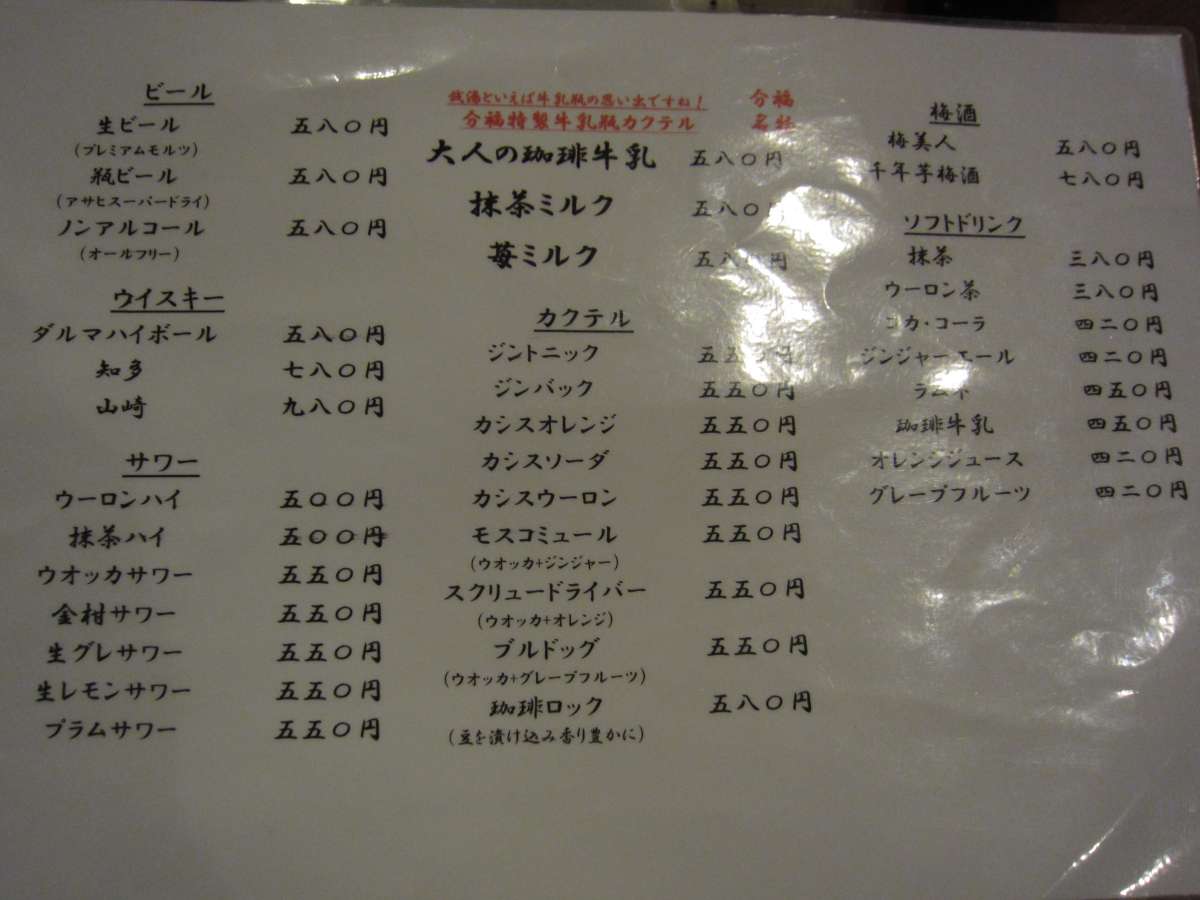 ビール
生ビール 五八〇円
(プレミアムモルツ)
瓶ビール 五八〇円
(アサヒスーパードライ)
ノンアルコール 五八〇円
(オールフリー)
ウイスキー
ダルマハイボール 五八〇円
知多 七八〇円
山崎 九八〇円
サワー
ウーロンハイ 五〇〇円
抹茶ハイ 五〇〇円
ウオッカサワー 五五〇円
金柑サワー 五五〇円
生グレサワー 五五〇円
生レモンサワー 五五〇円
プラムサワー 五五〇円
銭湯といえば牛乳瓶の思い出ですね!
分福特製牛乳瓶カクテル
分福
名物
大人の珈琲牛乳 五八〇円
抹茶ミルク 五八〇円
苺ミルク 五八〇円
カクテル
ジントニック 五五〇円
ジンバック 五五〇円
カシスオレンジ 五五〇円
カシスソーダ 五五〇円
カシスウーロン 五五〇円
モスコミュール 五五〇円
(ウオッカ+ジンジャー)
スクリュードライバー 五五〇円
(ウオッカ+オレンジ)
ブルドッグ 五五〇円
(ウオッカ+グレープフルーツ)
珈琲ロック 五八〇円
(豆を漬け込み香り豊かに)
梅酒
梅美人 五八〇円
千年芋梅酒 七八〇円
ソフトドリンク
抹茶 三八〇円
ウーロン茶 三八〇円
コカ・コーラ 四二〇円
ジンジャーエール 四二〇円
ラムネ 四五〇円
珈琲牛乳 四五〇円
オレンジジュース 四二〇円
グレープフルーツ 四二〇円